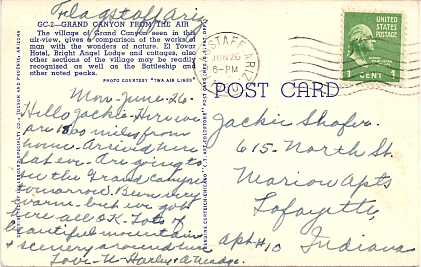 Flagstaff Ariz
GC-2—GRAND CANYON FROM THE AIR
The village of Grand Canyon seen in this
air-view, gives a comparison of the works of
man with the wonders of nature. El Tovar
Hotel, Bright Angel Lodge and cottages, also
other sections of the village may be readily
recognized as well as the Battleship and
other noted peaks.
PHOTO COURTESY "TWA AIR LINES"
Mon-June-26
Hello Jackie- Here we
are 1800 miles from
home- Arrived here
last eve- Are going to
see the Grand Canyon
tomorrow. Been very
warm- but we got
here all O.K. Lots of
beautiful mountains
+ scenery around here
Love-
FLAGSTAFF ARIZ.
JUN 26
6-PM
UNITED
STATES
POSTAGE
1 CENT 1
POST CARD
Jackie Shafer
615-North St.
Marion Apts
Lafayette,
Apt #10 Indiana